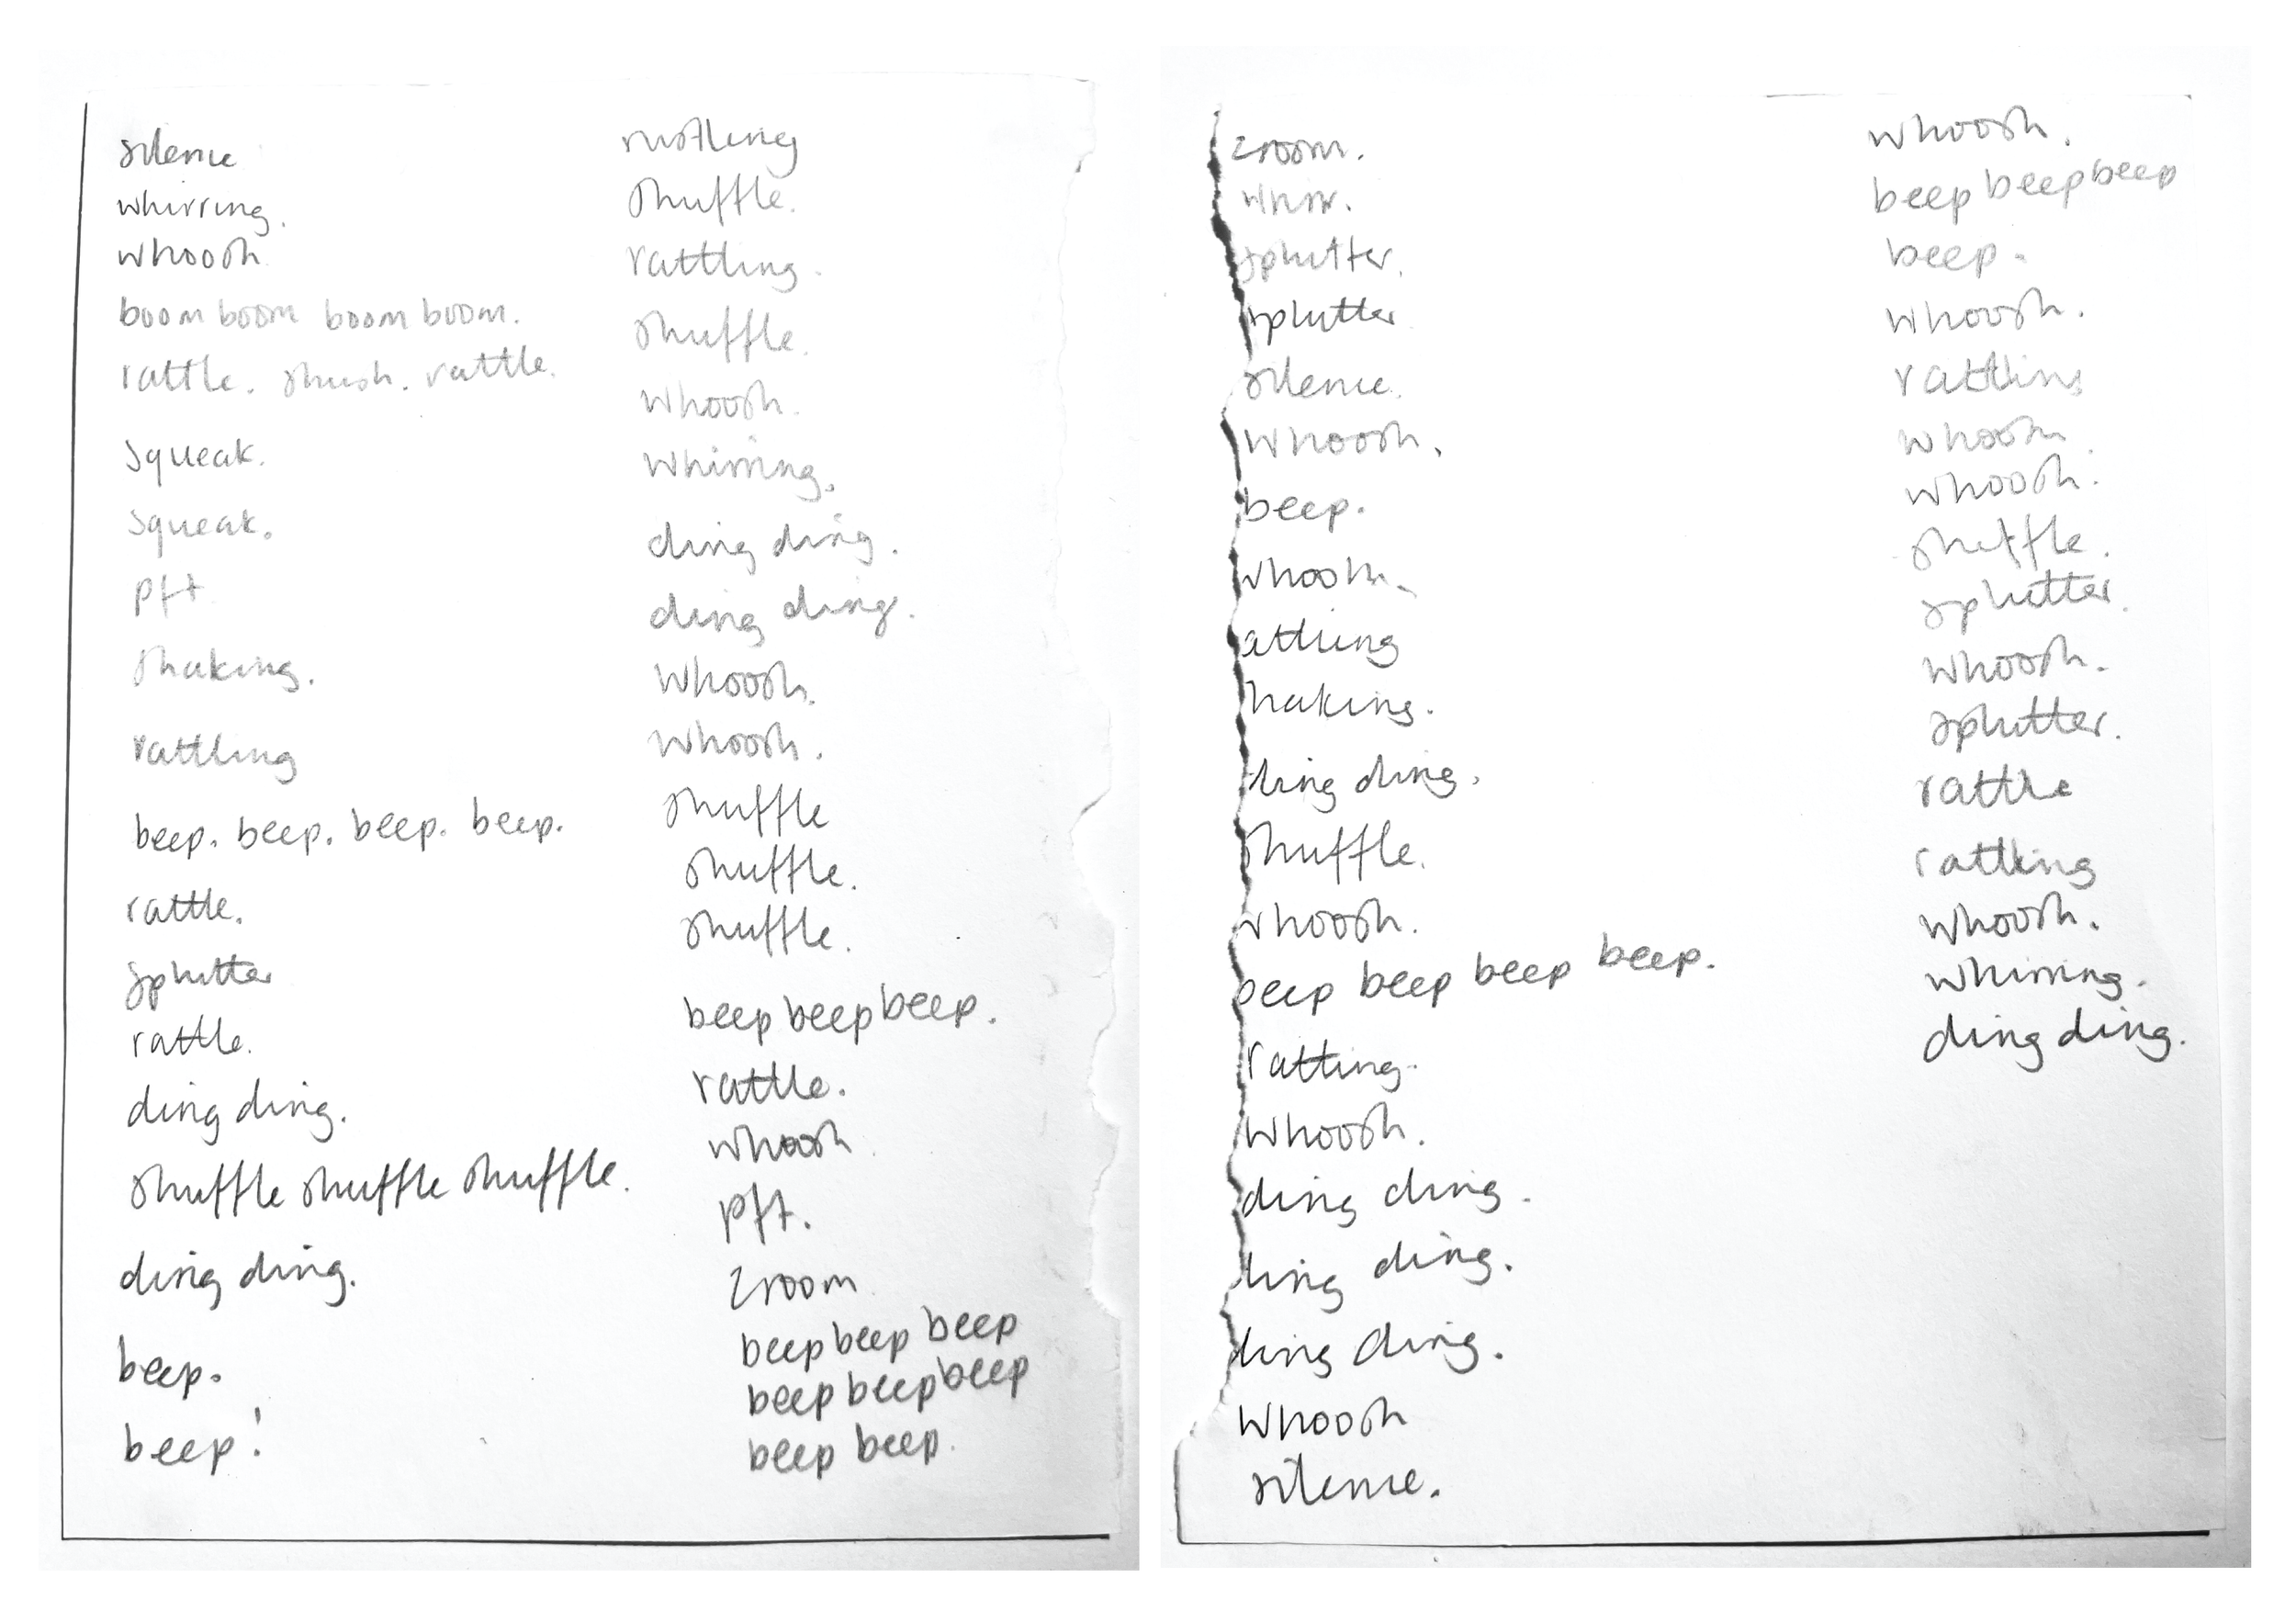 silence
whirring.
whoosh
boom boom boom boom.
rattle. shush. rattle.
squeak.
squeak.
pft
shaking.
rattling
beep. beep. beep. beep.
rattle.
splutter
rattle.
ding ding.
shuffle shuffle shuffle.
ding ding.
beep.
beep!
rustling
shuffle.
rattling.
shuffle.
whoosh.
whirring.
ding ding.
ding ding.
whoosh.
whoosh.
shuffle
shuffle.
shuffle.
beep beep beep.
rattle.
whoosh
pft.
zroom
beep beep beep
beep beep beep
beep beep.
zroom.
whirr.
splutter.
splutter
silence.
whoosh.
beep.
whoosh.
attling
haking.
ding ding.
shuffle.
whoosh.
beep beep beep beep.
rattling.
whoosh.
ding ding.
ding ding.
ding ding.
whoosh
silence.
whoosh.
beep beep beep
beep.
whoosh.
rattling
whoosh.
whoosh.
shuffle.
splutter.
whoosh.
splutter.
rattle
rattling
whoosh.
whirring.
ding ding.